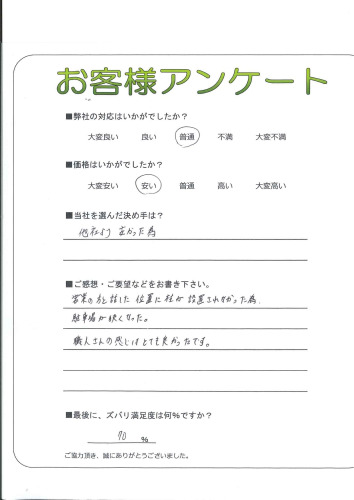 お客様アンケート
■弊社の対応はいかがでしたか?
大変良い 良い 普通 不満 大変不満
■価格はいかがでしたか?
大変安い 安い 普通 高い 大変高い
■当社を選んだ決め手は?
他社より 安かった為
■ご感想・ご要望などをお書き下さい。
営業の方と話した 位置に柱が設置されなかった為
駐車場が狭くなった。
職人さんの感じはとても良かったです。
■最後に、ズバリ満足度は何%ですか?
70 %
ご協力頂き、誠にありがとうございました。